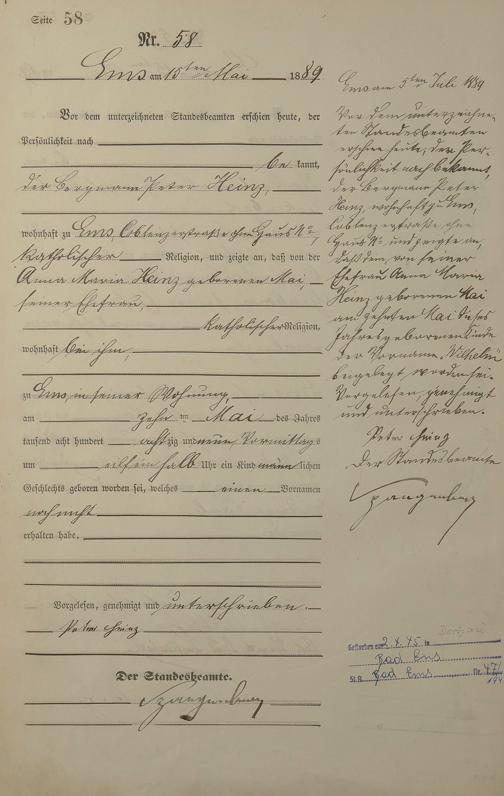 Seite 58
Nr. 58
Ems am 15ten Mai 1889
Vor dem unterzeichneten Standesbeamten erschien heute, der
Persönlichkeit nach
be kannt,
der Bergmann Peter Heinz,
wohnhaft zu Ems, Coblenzerstraße ohne Haus No,
katholischer Religion, und zeigte an, daß von der
Anna Maria Heinz geborenen Mai,
seiner Ehefrau,
katholischer Religion,
wohnhaft bei ihm,
zu Ems in seiner Wohnung,
am zehn ten Mai des Jahres
tausend acht hundert achtzig und neun Vormittags
um eilfeinhalb Uhr ein Kind männlichen
Geschlechts geboren worden sei, welches einen Vornamen
noch nicht
erhalten habe.
Vorgelesen, genehmigt und unterschrieben.
Peter Heinz
Der Standesbeamte.
Spangenberg
Ems am 5ten Juli 1889
Vor dem unterzeichne-
ten Standesbeamten
erschien heute, der Per-
sönlichkeit nach bekannt,
der Bergmann Peter
Heinz, wohnhaft zu Ems,
Coblenzerstraße ohne
Haus No, und zeigte an,
daß dem, von seiner
Ehefrau Anna Maria
Heinz geborenen Mai
am zehnten Mai dieses
Jahres geborenen Kinde
der Vorname Wilhelm
beigelegt worden sei.
Vorgelesen, genehmigt
und unterschrieben.
Peter Heinz
Der Standesbeamte
Spangenberg
Gestorben am 2.X.45 in
Bad Ems
St.A. Bad Ems Nr.